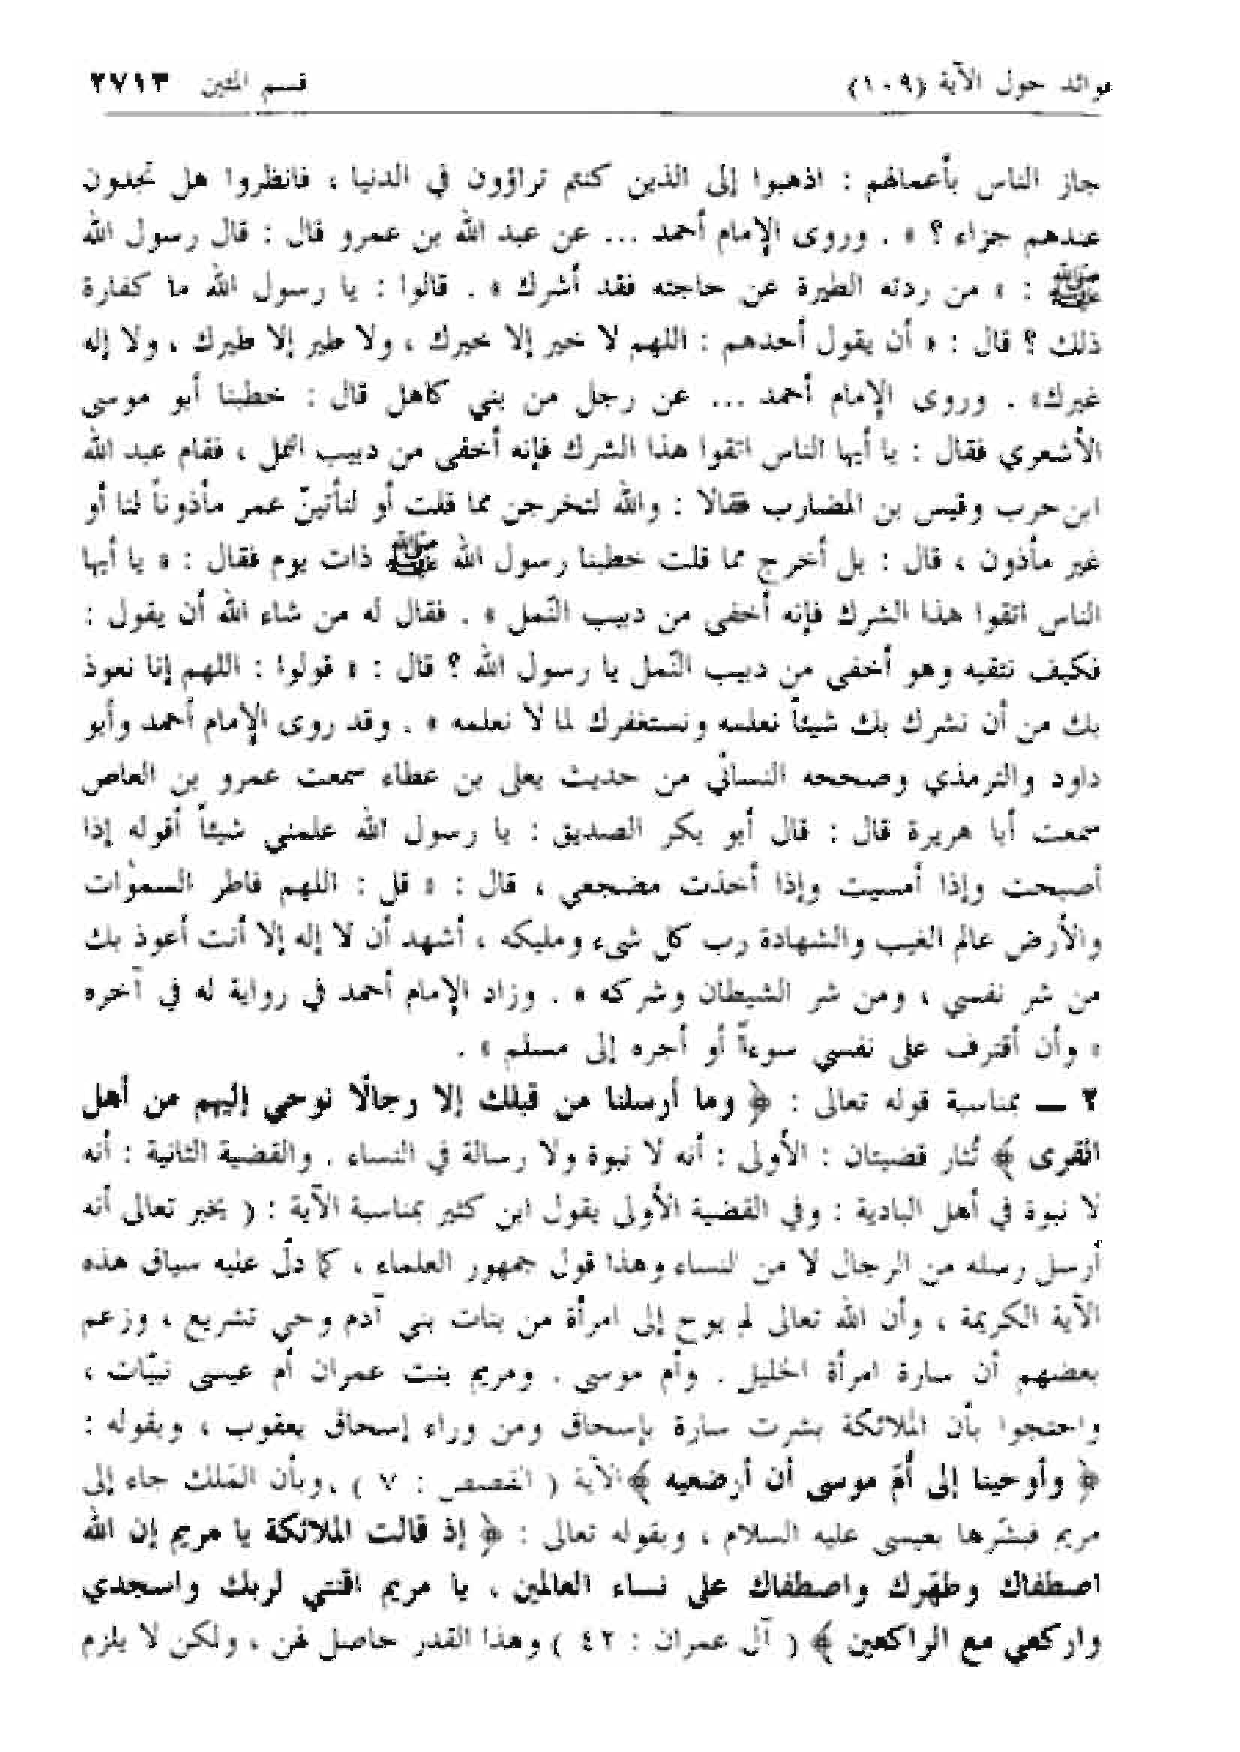 فوائد حول الآية (١٠٩) قسم المئين ٢٧١٣
جاز الناس بأعمالهم : اذهبوا إلى الذين كنتم تراؤون في الدنيا ، فانظروا هل تجدون
عندهم جزاء ؟ » . وروى الإمام أحمد ... عن عبد الله بن عمرو قال : قال رسول الله
ﷺ : « من ردته الطيرة عن حاجته فقد أشرك » . قالوا : يا رسول الله ما كفارة
ذلك ؟ قال : « أن يقول أحدهم : اللهم لا خير إلا خيرك ، ولا طير إلا طيرك ، ولا إله
غيرك» . وروى الإمام أحمد ... عن رجل من بني كاهل قال : خطبنا أبو موسى
الأشعري فقال : يا أيها الناس اتقوا هذا الشرك فإنه أخفى من دبيب النمل ، فقام عبد الله
ابن حرب وقيس بن المضارب فقالا : والله لتخرجن مما قلت أو لنأتينّ عمر مأذوناً لنا أو
غير مأذون ، قال : بل أخرج مما قلت خطبنا رسول الله ﷺ ذات يوم فقال : « يا أيها
الناس اتقوا هذا الشرك فإنه أخفى من دبيب النّمل » . فقال له من شاء الله أن يقول :
فكيف نتقيه وهو أخفى من دبيب النّمل يا رسول الله ؟ قال : « قولوا : اللهم إنا نعوذ
بك من أن نشرك بك شيئاً نعلمه ونستغفرك لما لا نعلمه » . وقد روى الإمام أحمد وأبو
داود والترمذي وصححه النسائي من حديث يعلى بن عطاء سمعت عمرو بن العاص
سمعت أبا هريرة قال : قال أبو بكر الصديق : يا رسول الله علمني شيئاً أقوله إذا
أصبحت وإذا أمسيت وإذا أخذت مضجعي ، قال : « قل : اللهم فاطر السموات
والأرض عالم الغيب والشهادة رب كل شيء ومليكه ، أشهد أن لا إله إلا أنت أعوذ بك
من شر نفسي ، ومن شر الشيطان وشركه » . وزاد الإمام أحمد في رواية له في آخره
« وأن أقترف على نفسي سوءاً أو أجره إلى مسلم » .
٢ ــ بمناسبة قوله تعالى : ﴿ وما أرسلنا من قبلك إلا رجالًا نوحي إليهم من أهل
القرى ﴾ تُثار قضيتان : الأولى : أنه لا نبوة ولا رسالة في النساء . والقضية الثانية : أنه
لا نبوة في أهل البادية : وفي القضية الأولى يقول ابن كثير بمناسبة الآية : ( يخبر تعالى أنه
أرسل رسله من الرجال لا من النساء وهذا قول جمهور العلماء ، كما دلّ عليه سياق هذه
الآية الكريمة ، وأن الله تعالى لم يوح إلى امرأة من بنات بني آدم وحي تشريع ، وزعم
بعضهم أن سارة امرأة الخليل . وأم موسى . ومريم بنت عمران أم عيسى نبيّات ،
واحتجوا بأن الملائكة بشرت سارة بإسحاق ومن وراء إسحاق يعقوب ، وبقوله :
﴿ وأوحينا إلى أُمّ موسى أن أرضعيه ﴾ الآية ( القصص : ٧ ) . وبأن المَلك جاء إلى
مريم فبشّرها بعيسى عليه السلام ، وبقوله تعالى : ﴿ إذ قالت الملائكة يا مريم إن الله
اصطفاك وطهّرك واصطفاك على نساء العالمين ، يا مريم اقنتي لربك واسجدي
واركعي مع الراكعين ﴾ ( آل عمران : ٤٢ ) وهذا القدر حاصل لهن ، ولكن لا يلزم